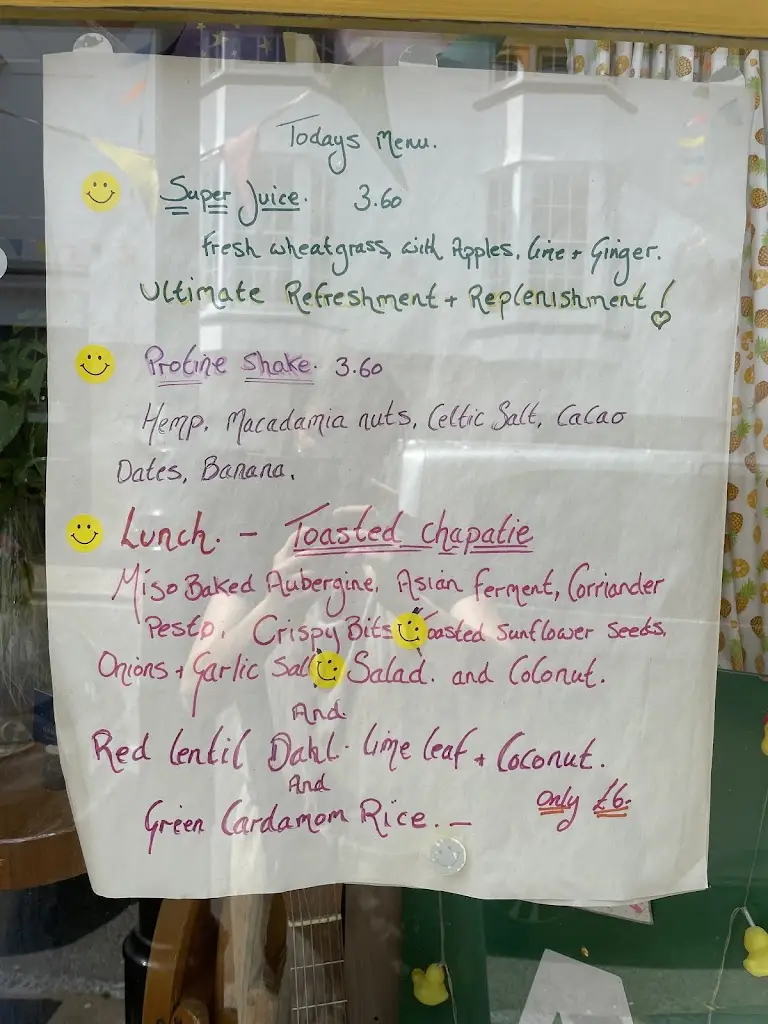 Todays Menu.
Super Juice. 3.60
Fresh wheatgrass, with Apples, Lime + Ginger.
Ultimate Refreshment + Replenishment!
Protine Shake. 3.60
Hemp, Macadamia nuts, Celtic Salt, Cacao
Dates, Banana.
Lunch. - Toasted Chapatie
Miso Baked Aubergine, Asian ferment, Corriander
Pesto, Crispy Bits oasted Sunflower Seeds,
Onions + Garlic Sal Salad. and Coconut.
And
Red Lentil Dahl. Lime leaf + Coconut.
And
Green Cardamom Rice. - Only £6.